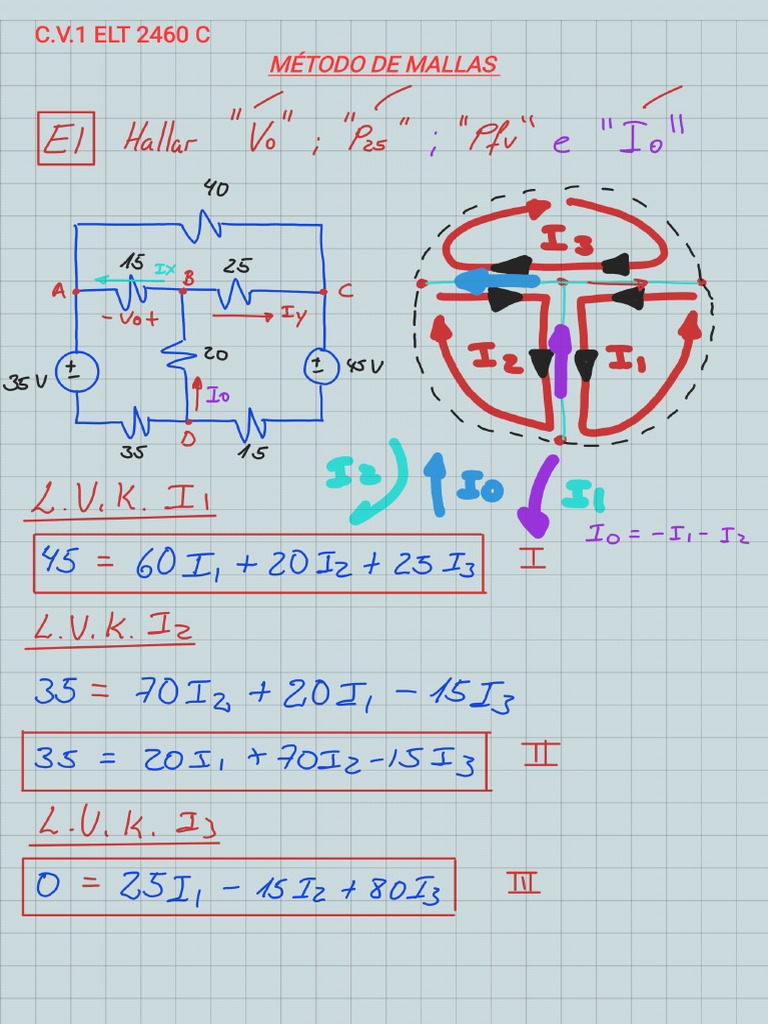 C.V.1 ELT 2460 C
MÉTODO DE MALLAS
E1 Hallar "Vo" ; "P25" ; "Pfv" e "Io"
40
15 Ix B 25
A C
- Vo + Iy
35 V ± 20 ± 45 V
Io
35 D 15
I3
I2 I1
I2 Io I1
Io = -I1 - I2
L.V.K. I1
45 = 60I1 + 20I2 + 25I3 I
L.V.K. I2
35 = 70I2 + 20I1 - 15I3
35 = 20I1 + 70I2 - 15I3 II
L.V.K. I3
0 = 25I1 - 15I2 + 80I3 III